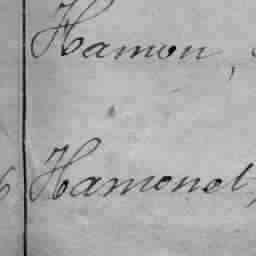 Hamon,
Hamonet,